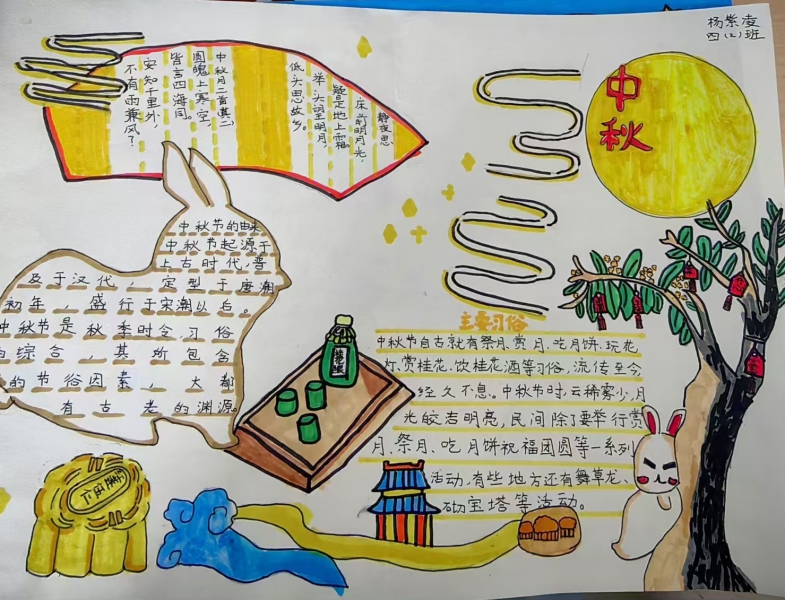 杨紫凌
四(2)班
中
秋
静夜思
床前明月光，
疑是地上霜
举头望明月，
低头思故乡。
中秋月二首其二
圆魄上寒空，
皆言四海同。
安知千里外，
不有雨兼风？
中秋节的由来
中秋节起源于
上古时代，普
及于汉代，定型于唐潮
初年，盛行于宋潮以后。
中秋节是秋季时令习俗
的综合，其所包含
的节俗因素，大都
有古老的渊源。
主要习俗
中秋节自古就有祭月、赏月、吃月饼、玩花
灯、赏桂花、饮桂花酒等习俗，流传至今，
经久不息。中秋节时，云稀雾少，月
光皎洁明亮，民间除了要举行赏
月、祭月、吃月饼祝福团圆等一系列
活动，有些地方还有舞草龙、
砌宝塔等活动。